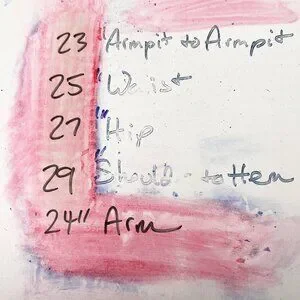 23" Armpit to Armpit
25" Waist
27" Hip
29" Should - to Hem
24" Arm